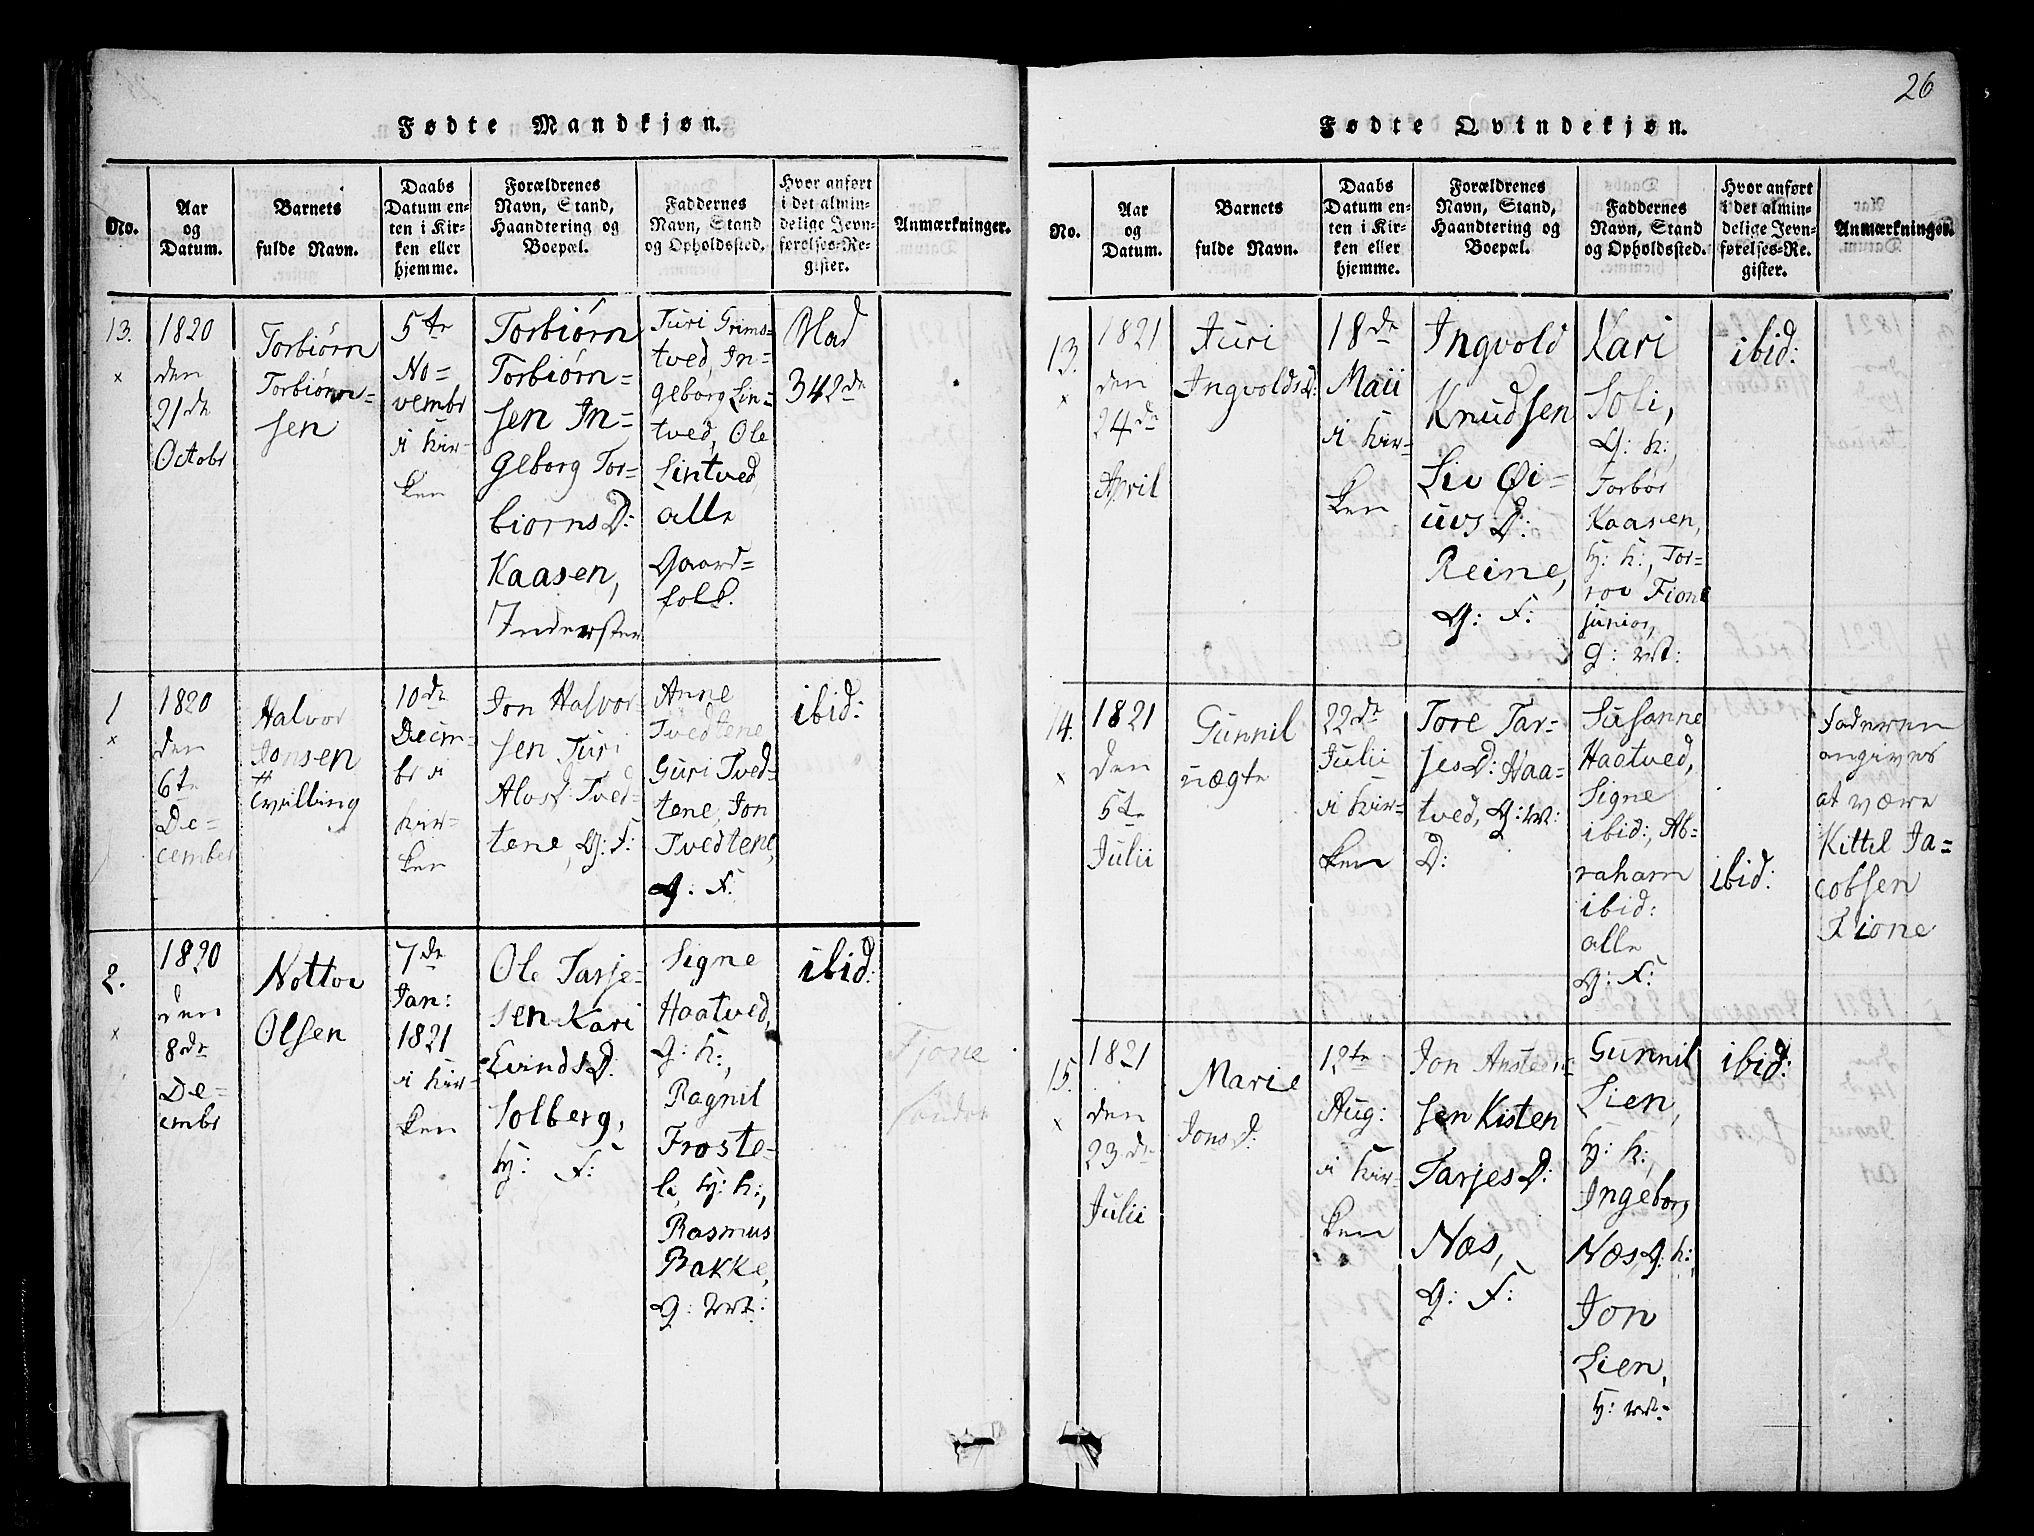 26
Fødte Mandkjøn.
No.
Aar
og
Datum.
Barnets
fulde Navn.
Daabs
Datum en-
ten i Kir-
ken eller
hjemme.
Forældrenes
Navn, Stand,
Haandtering og
Boepæl.
Faddernes
Navn, Stand
og Opholdssted.
Hvor anført
i det almin-
delige Jevn-
førelses-Re-
gister.
Anmærkninger.
13.
×
1820
den
21de
Octobr
Torbiørn
Torbiørn=
sen
5te
No=
vembr
i Kir-
ken
Torbiørn
Torbiørn=
sen In=
geborg Tor=
biorns D:
Kaasen,
Inderster
Turi Grims=
tved, In=
geborg Lin=
tved, Ole
Lintved,
alle
Gaard=
folk.
Blad
342de
1
×
1820
den
6te
De=
cember
Halvor
Jonsen
tvilling
10de
Decm-
br i
Kir-
ken
Jon Halvor
sen Turi
Alvs D Tved-
tene, G: F:
Anne
Tvedtene
Guri Tved-
tene, Jon
Tvedtene,
G. F.
ibid:
2.
×
1820
den
8de
De=
cembr
Nottov
Olsen
7de
Jan:
1821
i Kir-
ken
Ole Tarje-
sen Kari
Evinds D:
Solberg,
H: F:
Signe
Haatved,
G: K:,
Ragnil
Froste-
li, H: K:,
Rasmus
Bakke,
G:
ibid:
Fjone
Søndre
Fødte Qvindekjøn.
No.
Aar
og
Datum.
Barnets
fulde Navn.
Daabs
Datum en-
ten i Kir-
ken eller
hjemme.
Forældrenes
Navn, Stand,
Haandtering og
Boepæl.
Faddernes
Navn, Stand
og Opholdssted.
Hvor anført
i det almin-
delige Jevn-
førelses-Re-
gister.
Anmærkninger.
13.
×
1821
den
24de
April
Juri
Ingvolds D:
18de
Maii
i Kir-
ken
Ingvold
Knudsen
Liv Øi-
uvs D:
Reine,
G: F:
Kari
Soli,
G: K:,
Torbør
Kaasen,
H: K:, Tor-
rov Fione
junior,
G:
ibid:
14.
×
1821
den
5te
Julii
Gunnil
uægte
22de
Julii
i Kir-
ken
Tore Tar-
jes D: Haa-
tved, G:
D:
Susanne
Haatved,
Signe
ibid:, Ab-
raham
ibid:
alle
G: F:
ibid:
Faderen
angives
at være
Kittil Ja=
cobsen
Fione
15.
×
1821
den
23de
Julii
Marie
Jons D:
12te
Aug:
i Kir-
ken
Jon Ansten-
sen Kisten
Tarjes D:
Næs,
G: F:
Gunnil
Lien,
H: K:,
Ingeborg
Næs, G: K:,
Jon
Lien,
H:
ibid: